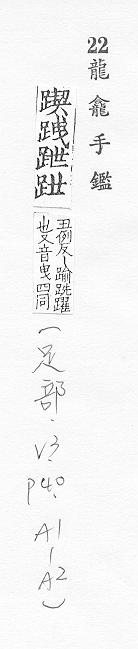 22龍龕手鑑
踶跩跇跇
丑例反~踰跣躍
也又音曳四同
(足部.V3.P40.A1-A2)